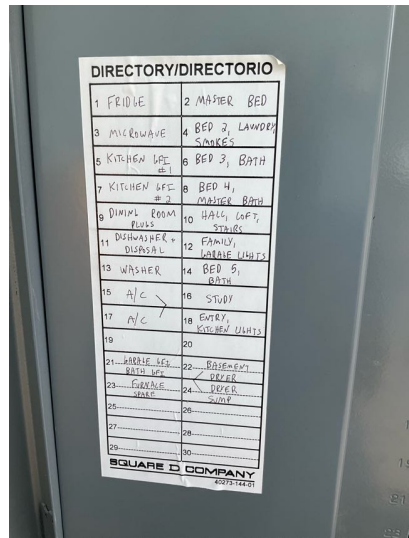 DIRECTORY/DIRECTORIO
1 FRIDGE
2 MASTER BED
3 MICROWAVE
4 BED 2, LAUNDRY,
SMOKES
5 KITCHEN GFI
#1
6 BED 3, BATH
7 KITCHEN GFI
#2
8 BED 4,
MASTER BATH
9 DINING ROOM
PLUGS
10 HALL, LOFT,
STAIRS
11 DISHWASHER +
DISPOSAL
12 FAMILY,
GARAGE LIGHTS
13 WASHER
14 BED 5,
BATH
15 A/C
16 STUDY
17 A/C
18 ENTRY,
KITCHEN LIGHTS
19
20
21 GARAGE GFI
BATH GFI
22 BASEMENT
DRYER
23 FURNACE
SPARE
24 DRYER
SUMP
25
26
27
28
29
30
SQUARE D COMPANY
40273-144-01